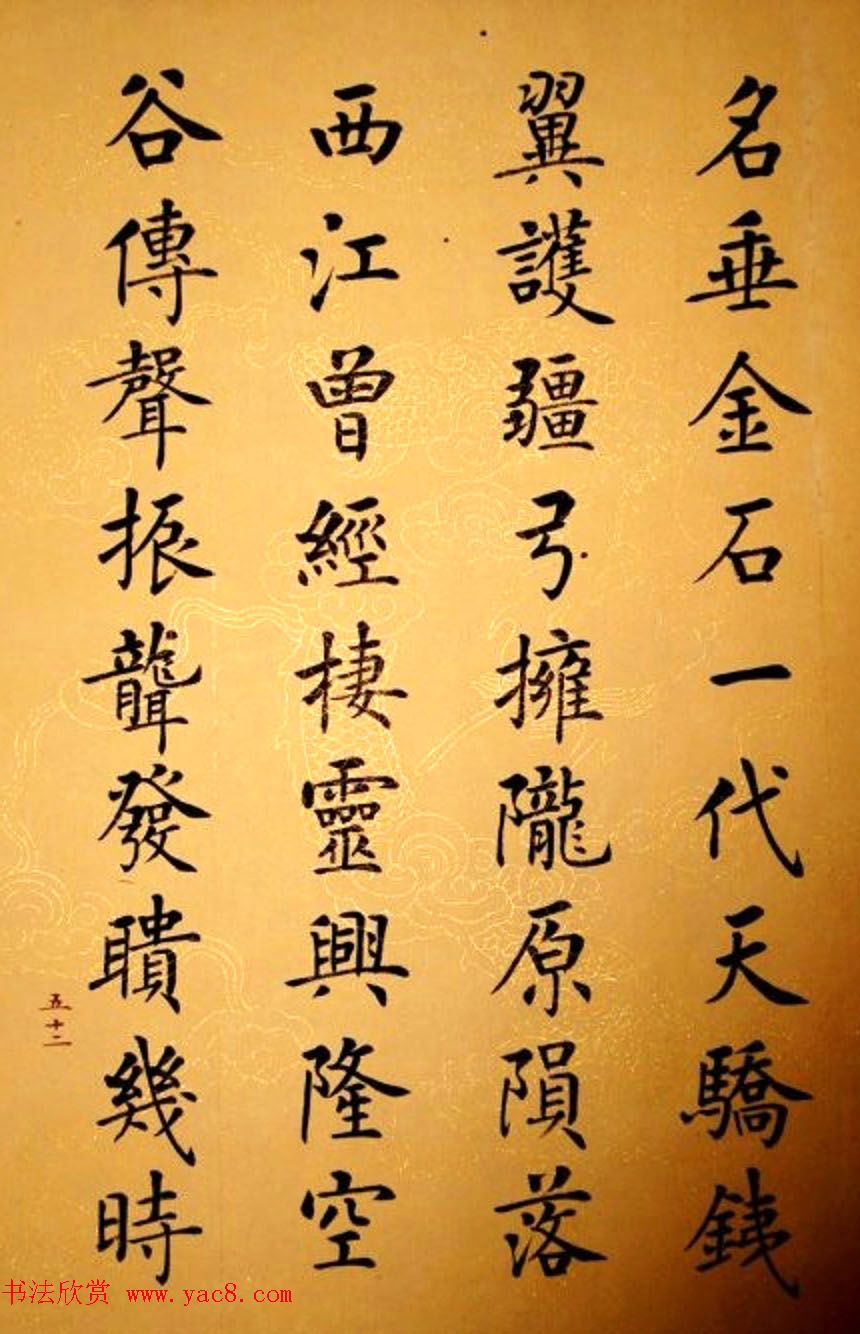 名垂金石一代天驕銕
翼護疆弓擁隴原隕落
西江曾經棲靈興隆空
谷傳聲振聾發聵幾時
五十二
书法欣赏 www.yac8.com